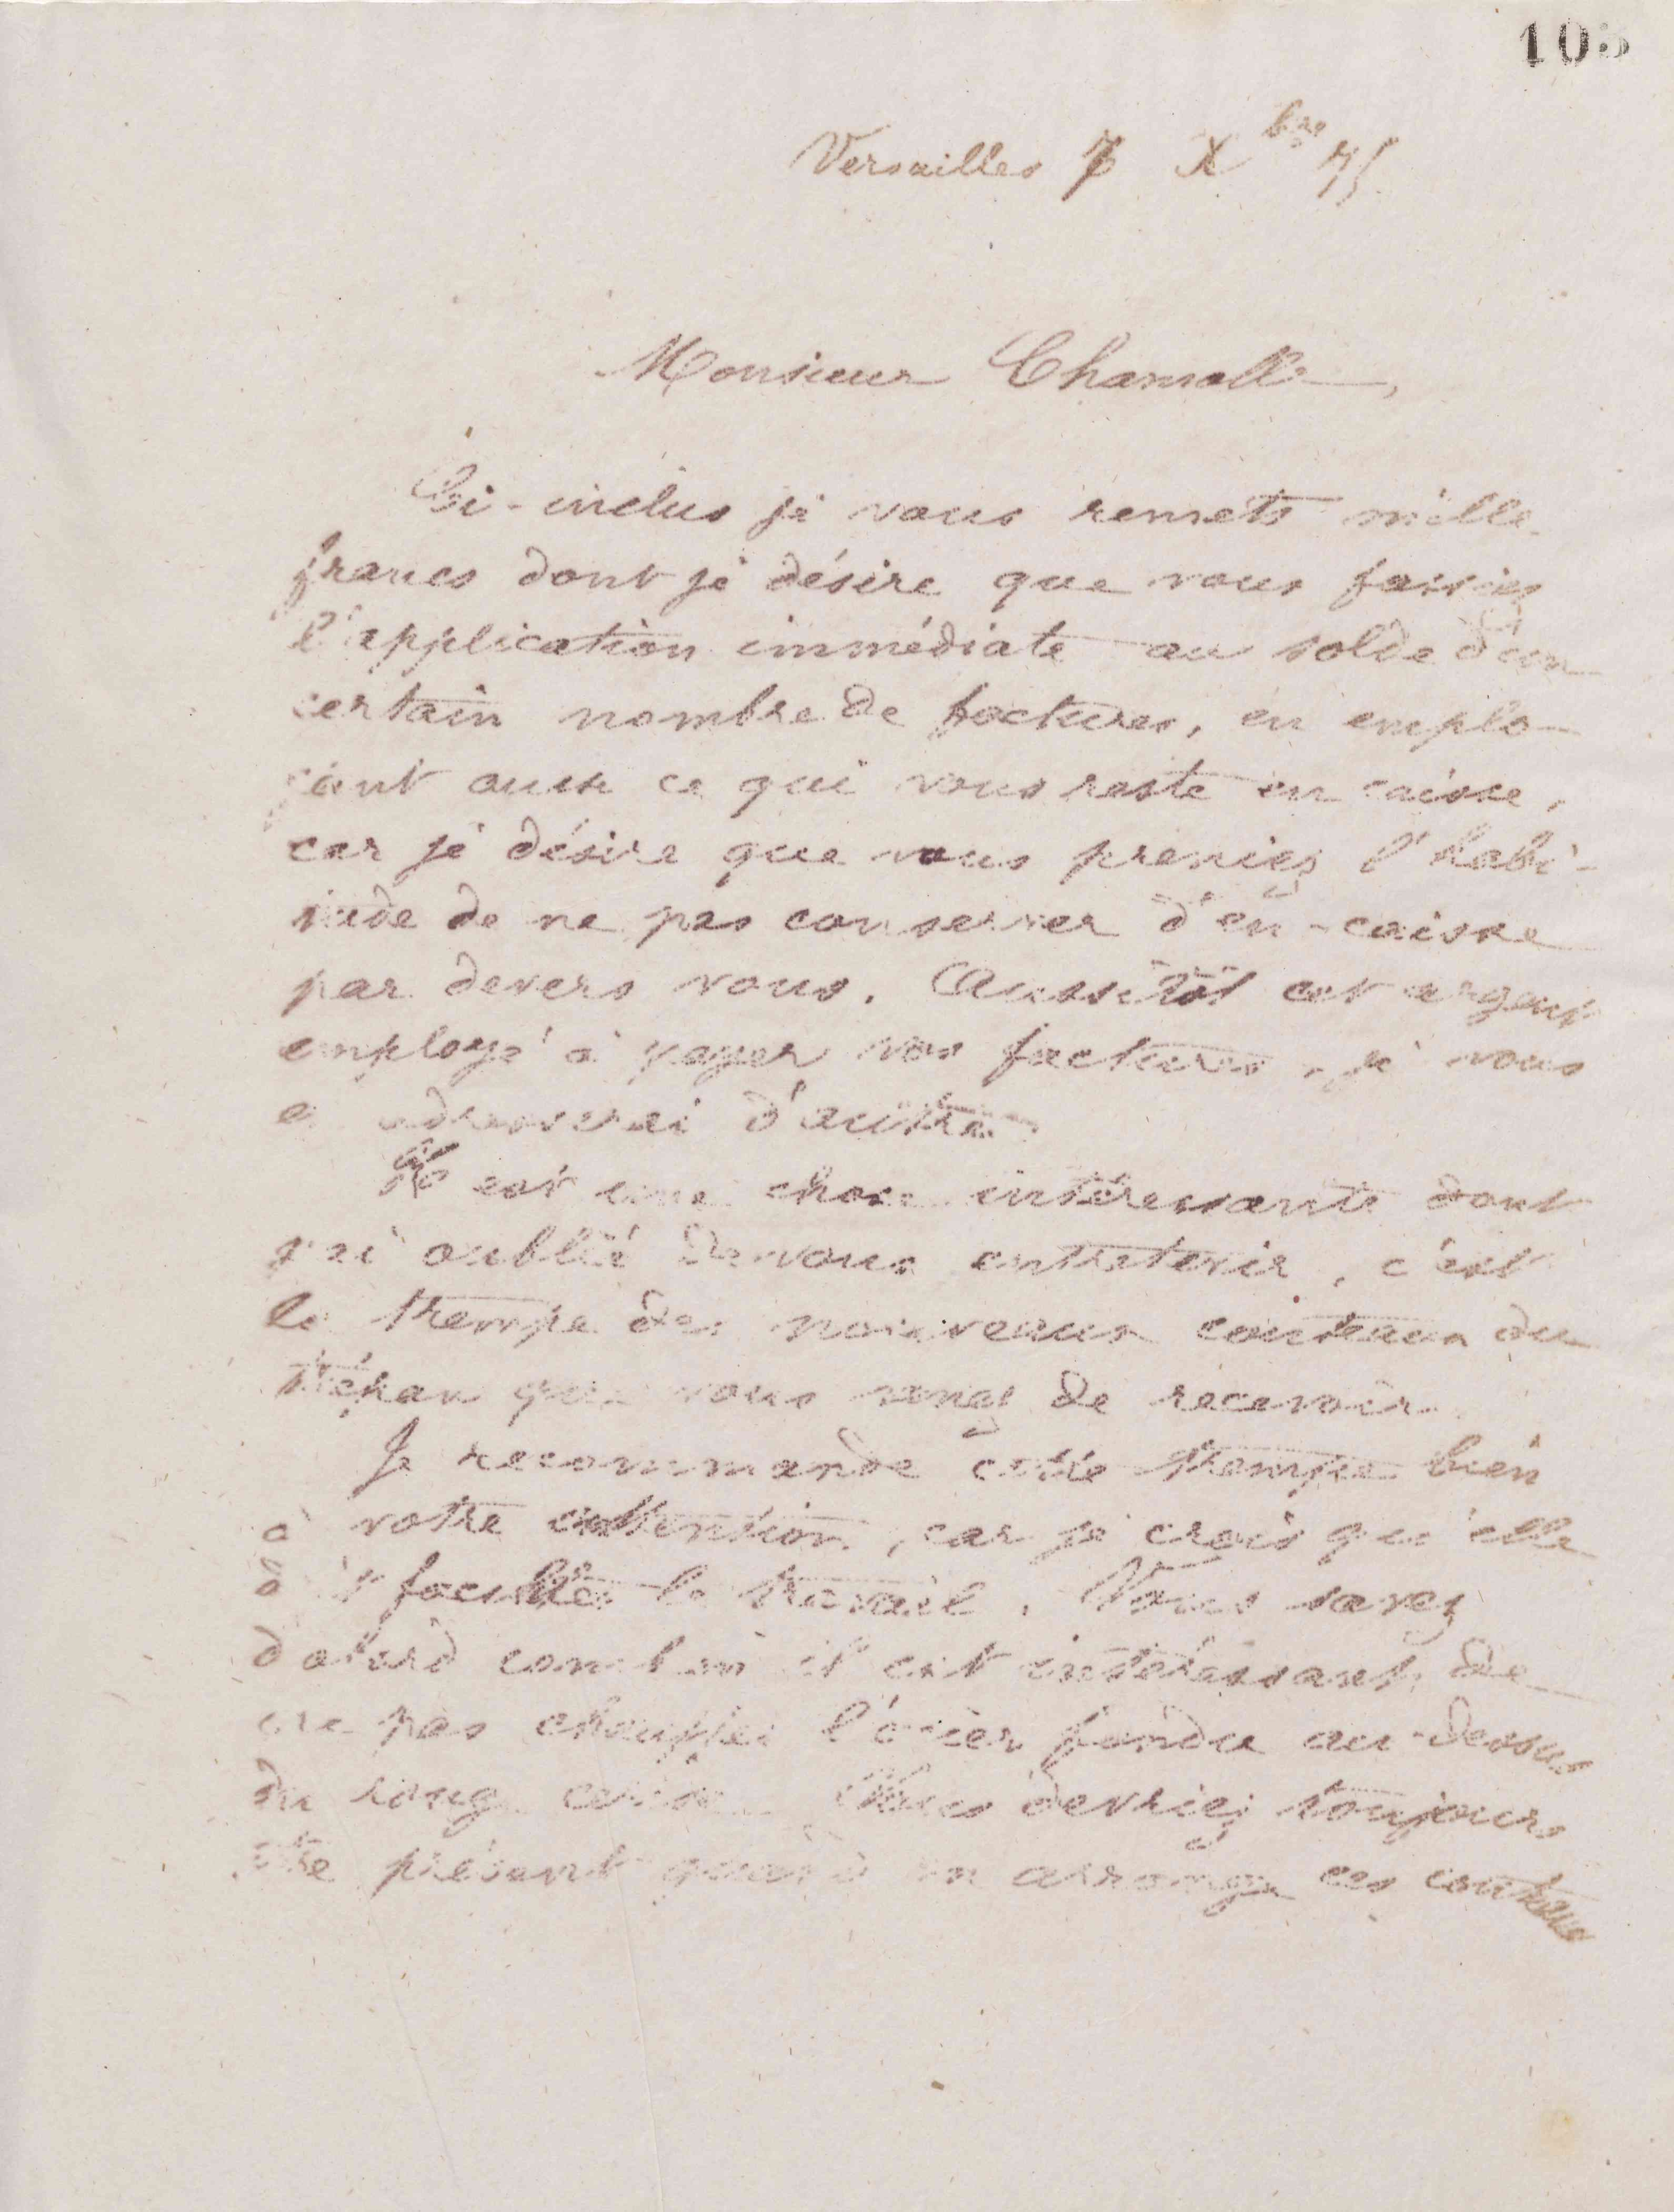 105
Versailles 7 Xbre 75
Monsieur Chamolle,
Ci-inclus je vous remets mille
francs dont je désire que vous fassiez
l'application immédiate au solde d'un
certain nombre de factures, en emplo-
yant aussi ce qui vous reste en caisse,
car je désire que vous preniez l'habi-
tude de ne pas conserver d'en-caisse
par devers vous. Aussitôt cet argent
employé à payer vos factures, je vous
en adresserai d'autre.
est une chose intéressante dont
j'ai oublié de vous entretenir, c'est
la trempe des nouveaux couteaux du
trépan que vous venez de recevoir.
Je recommande cette trempe bien
à votre attention, car je crois qu'elle
doit faciliter le travail. Vous savez
d'abord combien il est intéressant de
ne pas chauffer l'acier fondu au-dessus
du rouge cerise. Vous devriez toujours
être présent quand on arrange ces couteaux